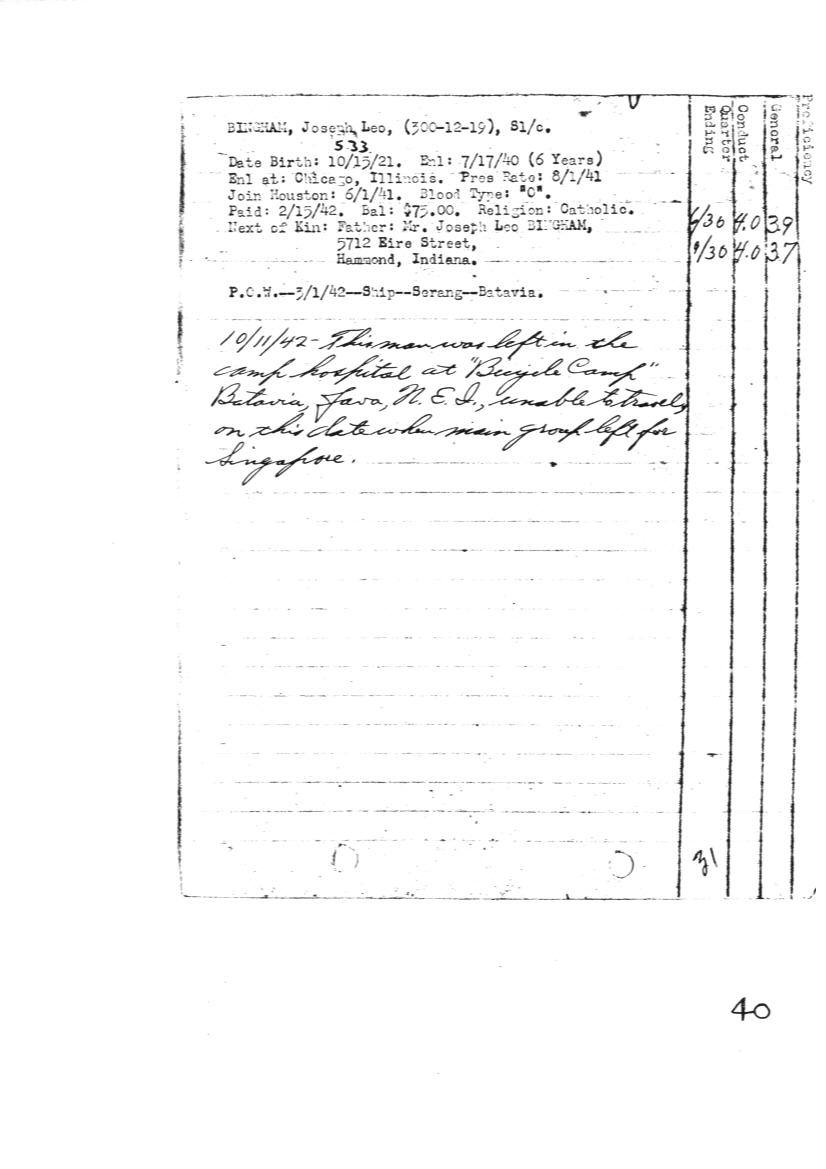 BINGHAM, Joseph Leo, (300-12-19), S1/c.
533
Date Birth: 10/15/21. Enl: 7/17/40 (6 Years)
Enl at: Chicago, Illinois. Pres Rate: 8/1/41
Join Houston: 6/1/41. Blood Type: "O".
Paid: 2/15/42. Bal: $75.00. Religion: Catholic.
Next of Kin: Father: Mr. Joseph Leo BINGHAM,
5712 Eire Street,
Hammond, Indiana.
P.O.W.--3/1/42--Ship--Serang--Batavia.
10/11/42- This man was left in the
camp hospital at "Bicycle Camp"
Batavia, Java, N. E. I., unable to travel,
on this date when main group left for
Singapore.
Quarter
Ending
Conduct
General
Proficiency
6/30 4.0 39
9/30 4.0 37
31
40